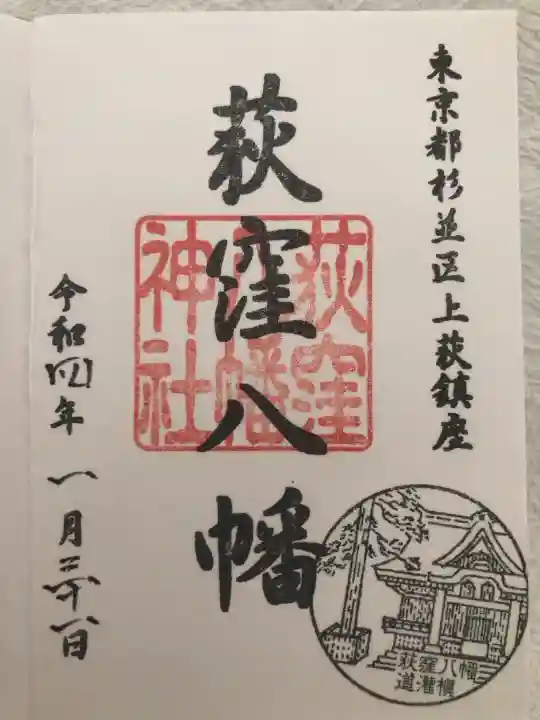 東京都杉並区上荻鎮座
荻窪八幡
荻窪
八幡
神社
令和四年 一月日
荻窪八幡
道灌槇